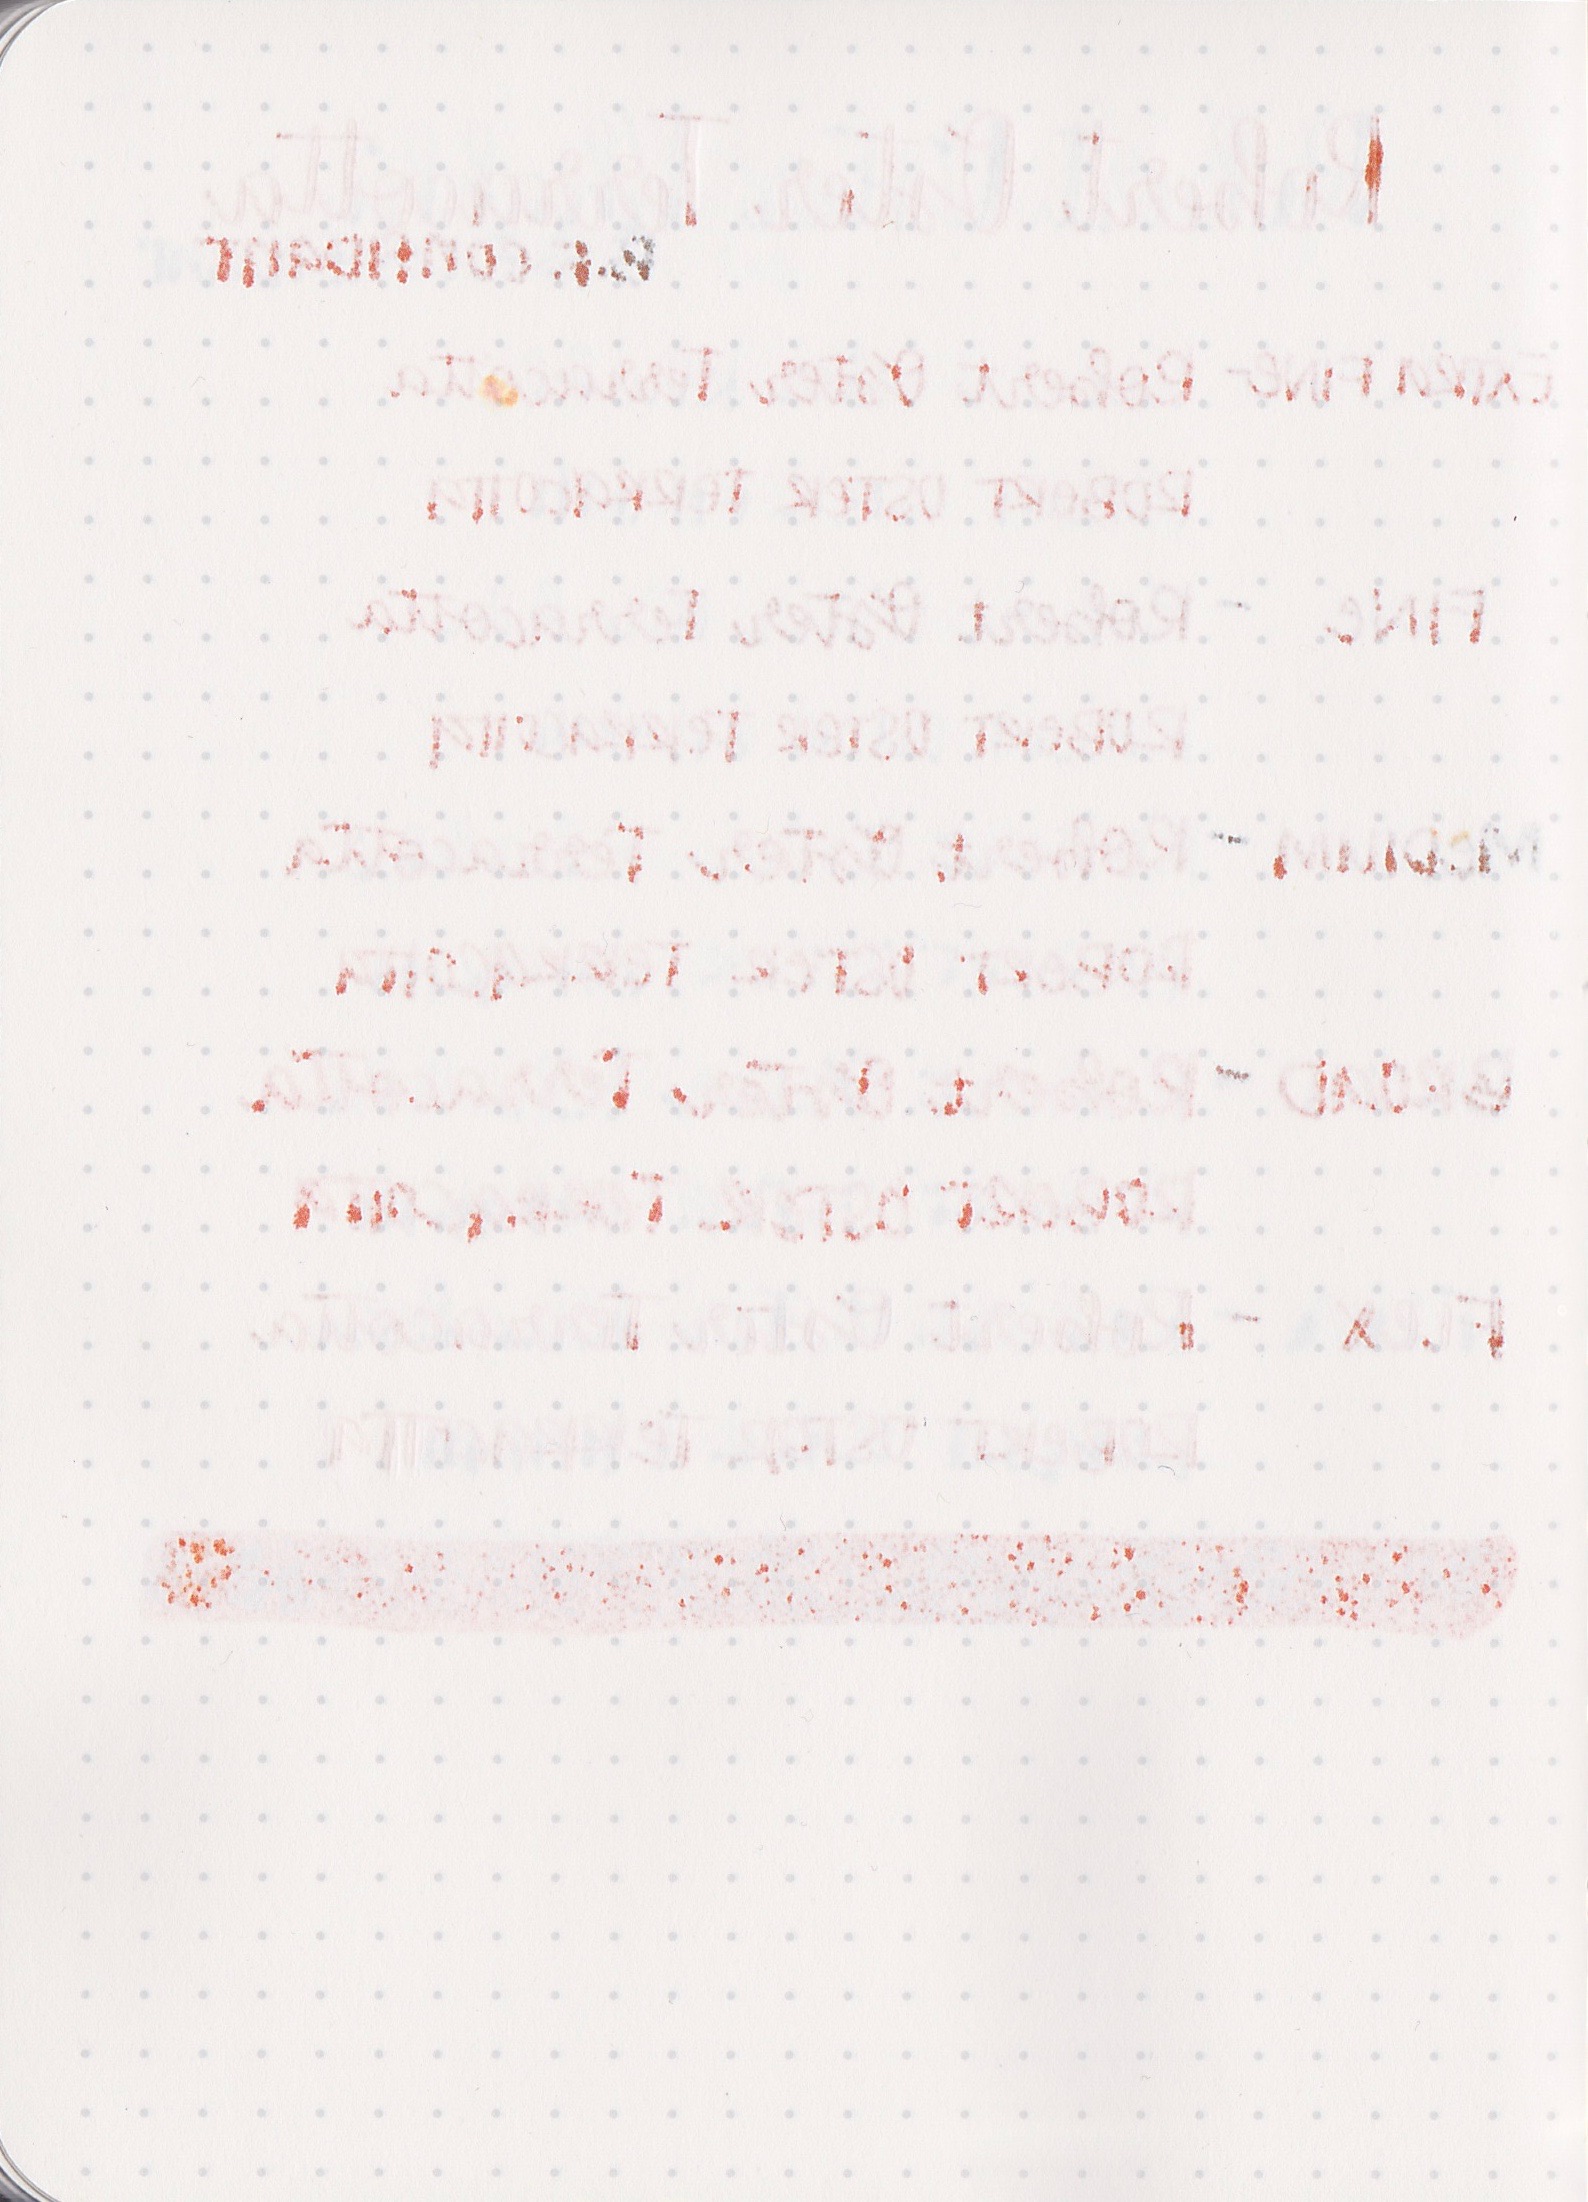 Robert Oster Terracotta
EXTRA FINE - Robert Oster Terracotta
ROBERT OSTER TERRACOTTA
FINE - Robert Oster Terracotta
ROBERT OSTER TERRACOTTA
MEDIUM - Robert Oster Terracotta
ROBERT OSTER TERRACOTTA
BROAD - Robert Oster Terracotta
ROBERT OSTER TERRACOTTA
FLEX - Robert Oster Terracotta
ROBERT OSTER TERRACOTTA